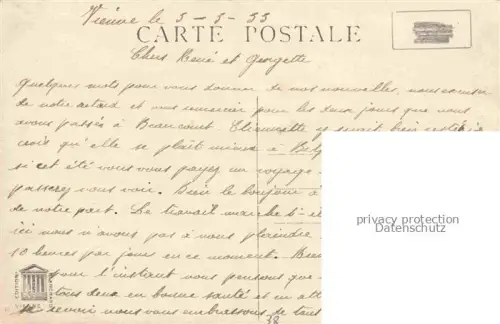 Vienne le 5-3-33
CARTE POSTALE
Chers René et Georgette
Quelques mots pour vous donner de nos nouvelles, nous excuser
de notre retard et vous remercier pour les deux jours que nous
avons passés à Beaucourt. Clémencette y serait bien restée
crois qu'elle se plaît mieux à Belf
si cet été vous vous payez un voyage
passerez nous voir. Bien le bonjour à
de notre part. Le travail marche
ici nous n'avons pas à nous plaindre
10 heures par jour en ce moment.
pour l'instant nous pensons que
tous deux en bonne santé et en att
se revoir nous vous embrassons de tout
privacy protection
Datenschutz
38